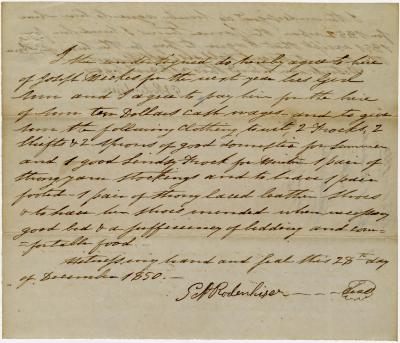 I the undersigned do hereby agree to hire
of Joseph for the next year his Girl
Ann and I agree to pay him for the hire
of Ann ten Dollars Cash wages, and to give
him the following Clothing to wit 2 Frocks, 2
Shifts & 2 of good domestic for Summer
and 1 good Lindsy Frock for Winter 1 pair of
strong yarn Stockings and to have 1 pair
footed 1 pair of strong laced leather Shoes
& to have her Shoes mended when necessary
good bed & a sufficiency of bedding and com=
=fortable food
Witnessing hand and seal this 28th day
of December 1850.—
Rodenhiser — — Seal